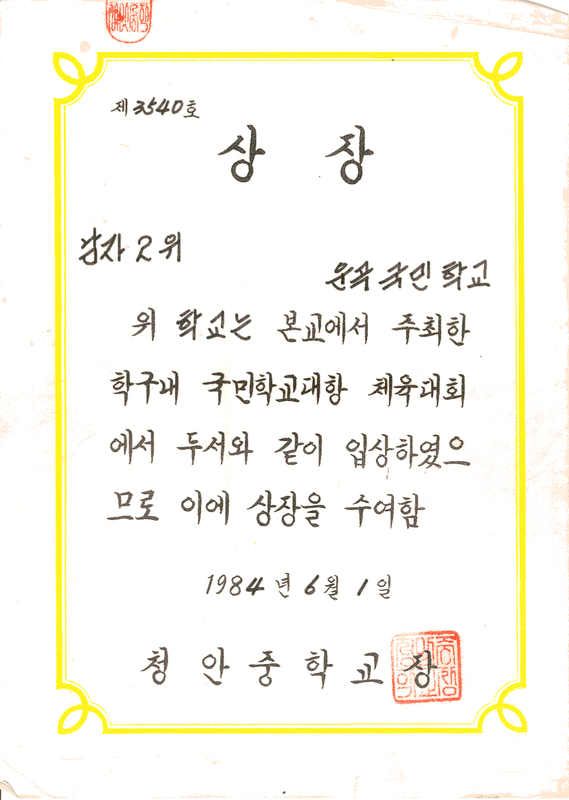 제 3540 호
상 장
남자 2 위
운곡 국민 학교
위 학교는 본교에서 주최한
학구내 국민학교대항 체육대회
에서 두서와 같이 입상하였으
므로 이에 상장을 수여함
1984 년 6 월 1 일
청 안 중 학 교 장